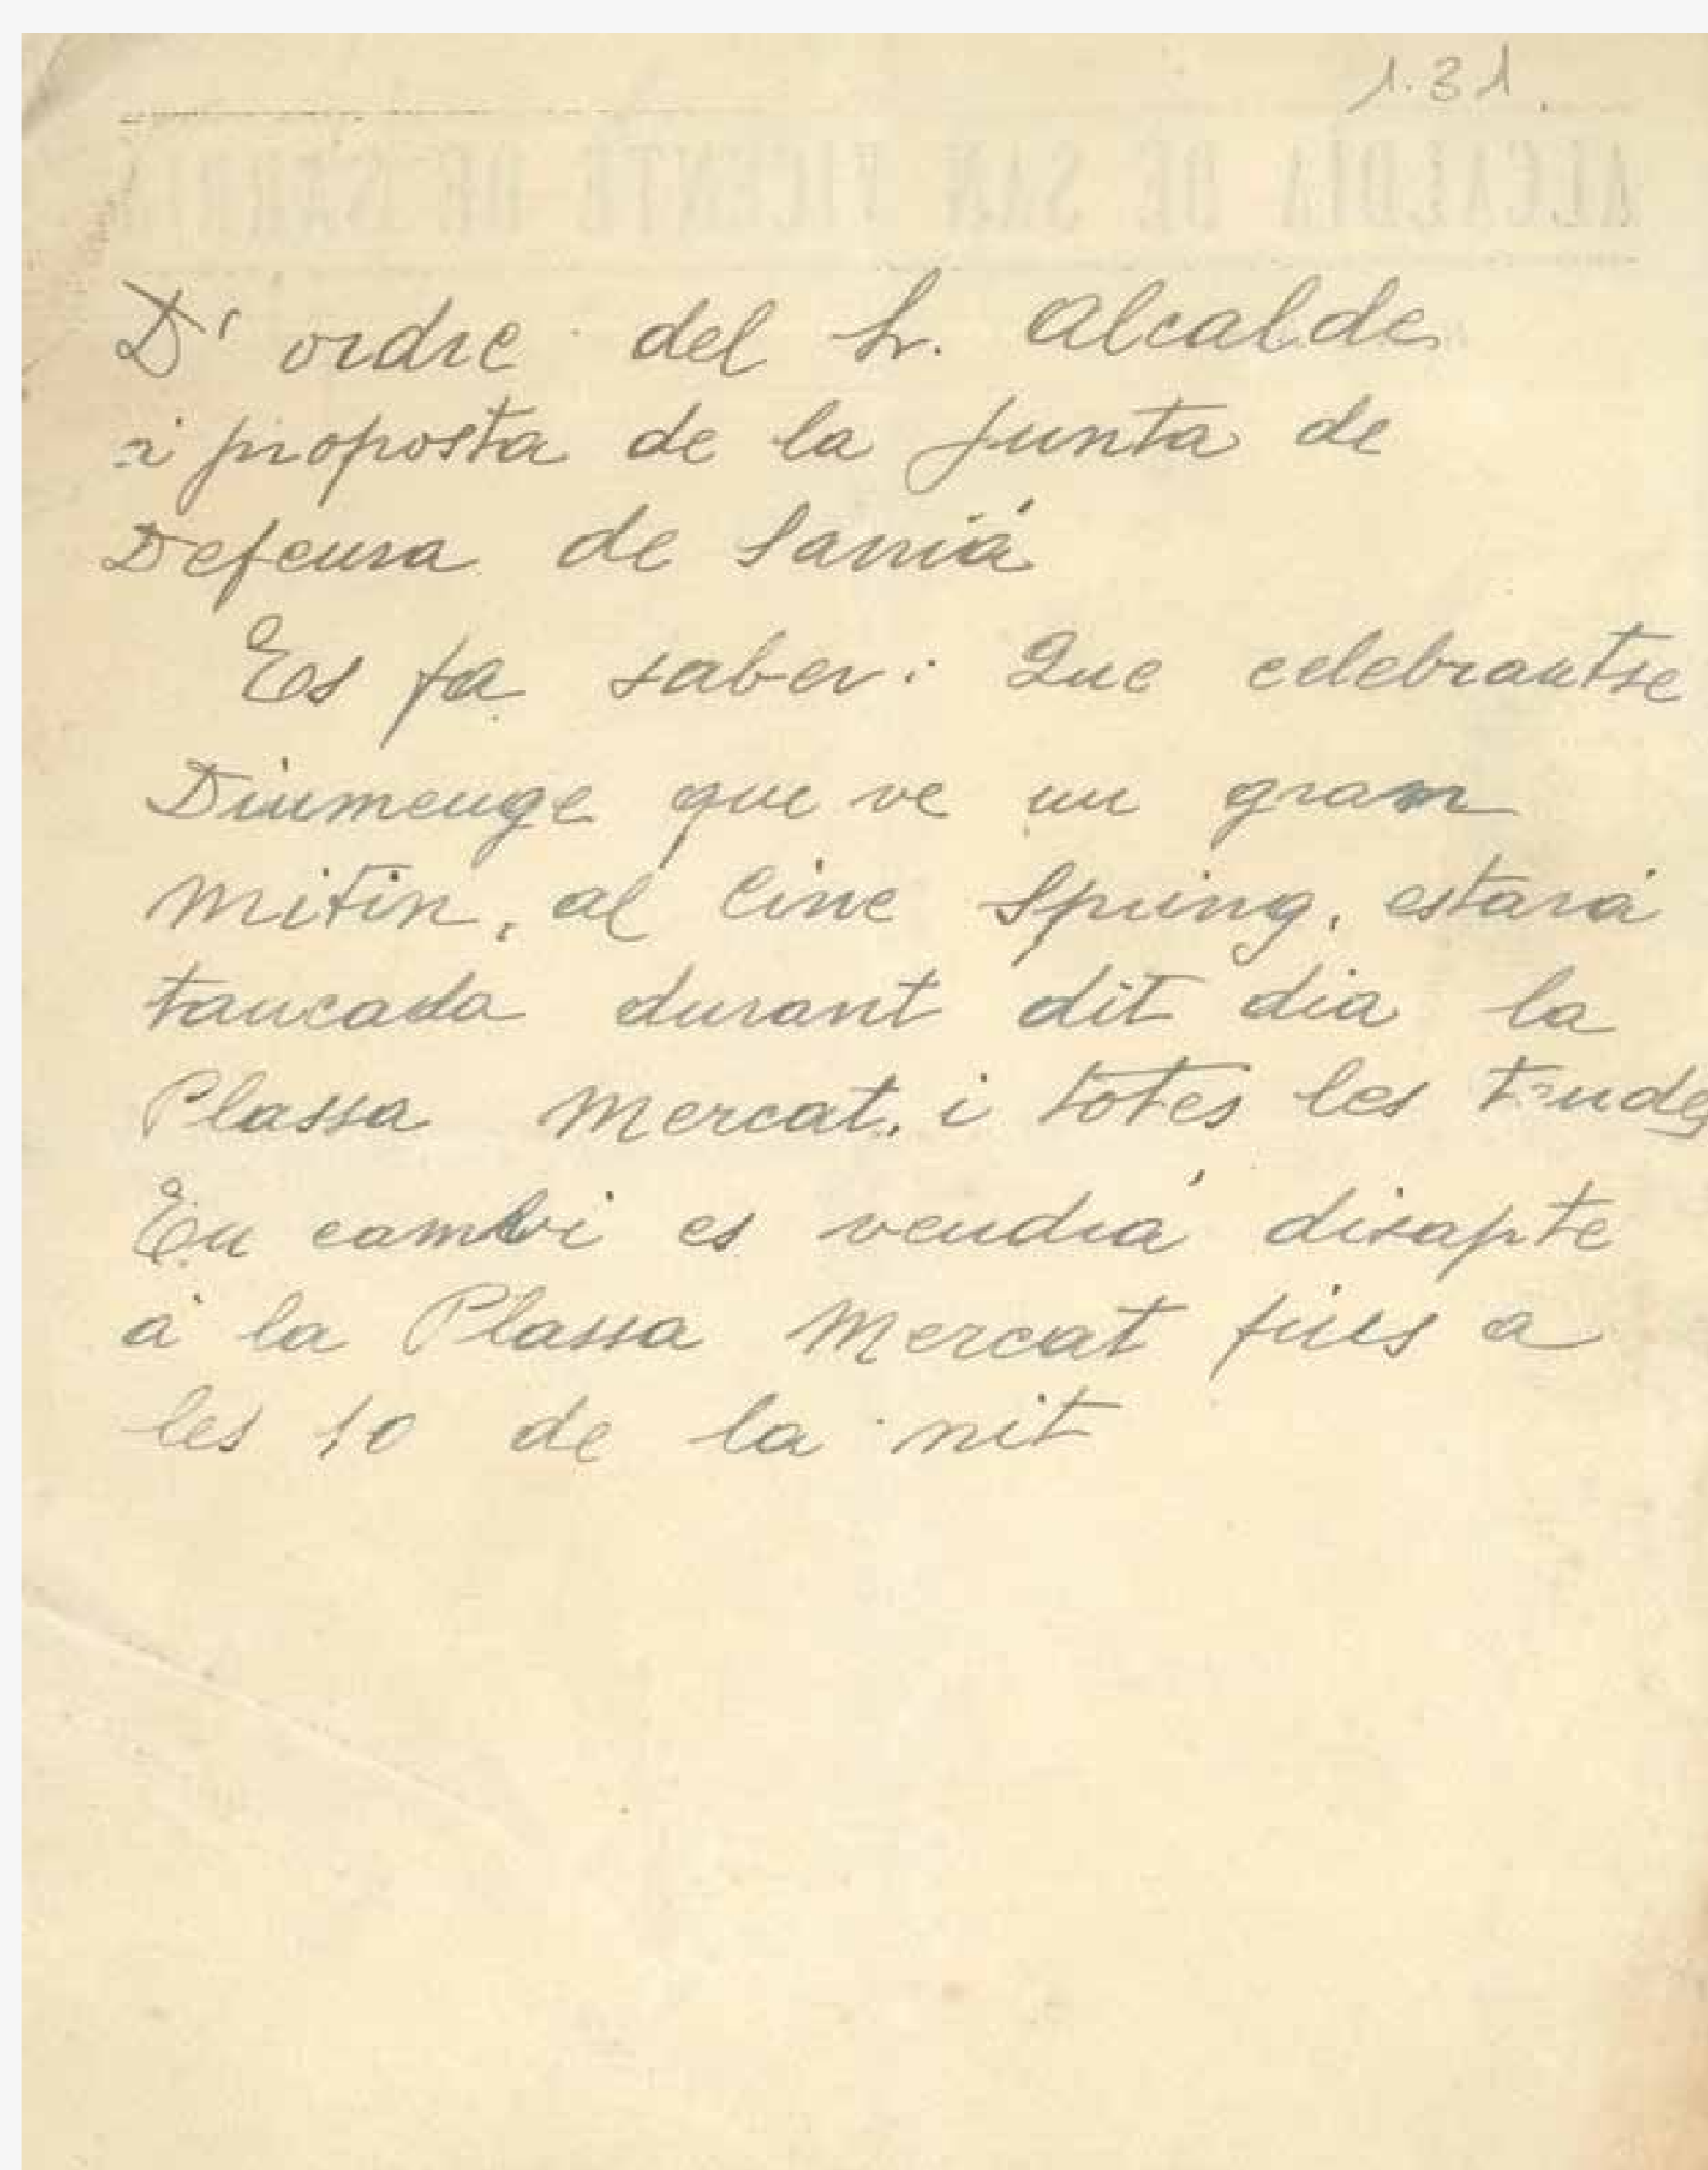 1.31.
ALCALDÍA DE SAN VICENTE DE SARRIÁ
D' ordre del Sr. Alcalde
i proposta de la Junta de
Defensa de Sarriá
Es fa saber: Que celebrantse
Diumenge que ve un gram
mitin, al Cine Spring, estará
tancada durant dit dia la
Plassa Mercat, i totes les tendes
En cambi es vendrá disapte
a la Plassa Mercat fins a
les 10 de la nit